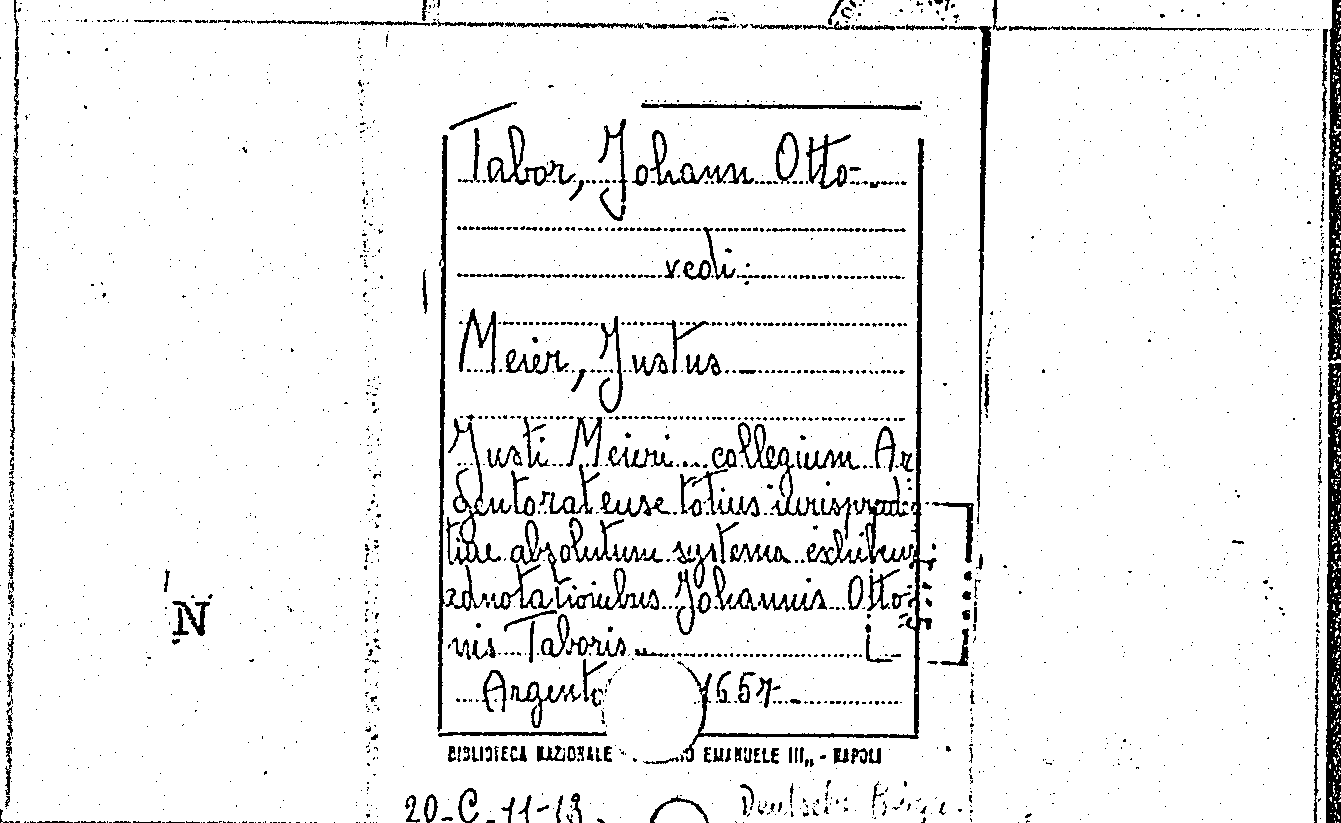 Tabor, Johann Otto-.
vedi:
Meier, Justus
Justi Meieri... collegium Ar
gentoratense totius iurisprud:
tiae absolutum systema exhibens
adnotationibus Johannis Otto-
nis Taboris..
Argento 1657-.
BIBLIOTECA NAZIONALE EMANUELE III„ - NAPOLI
N
20-C-11-13.